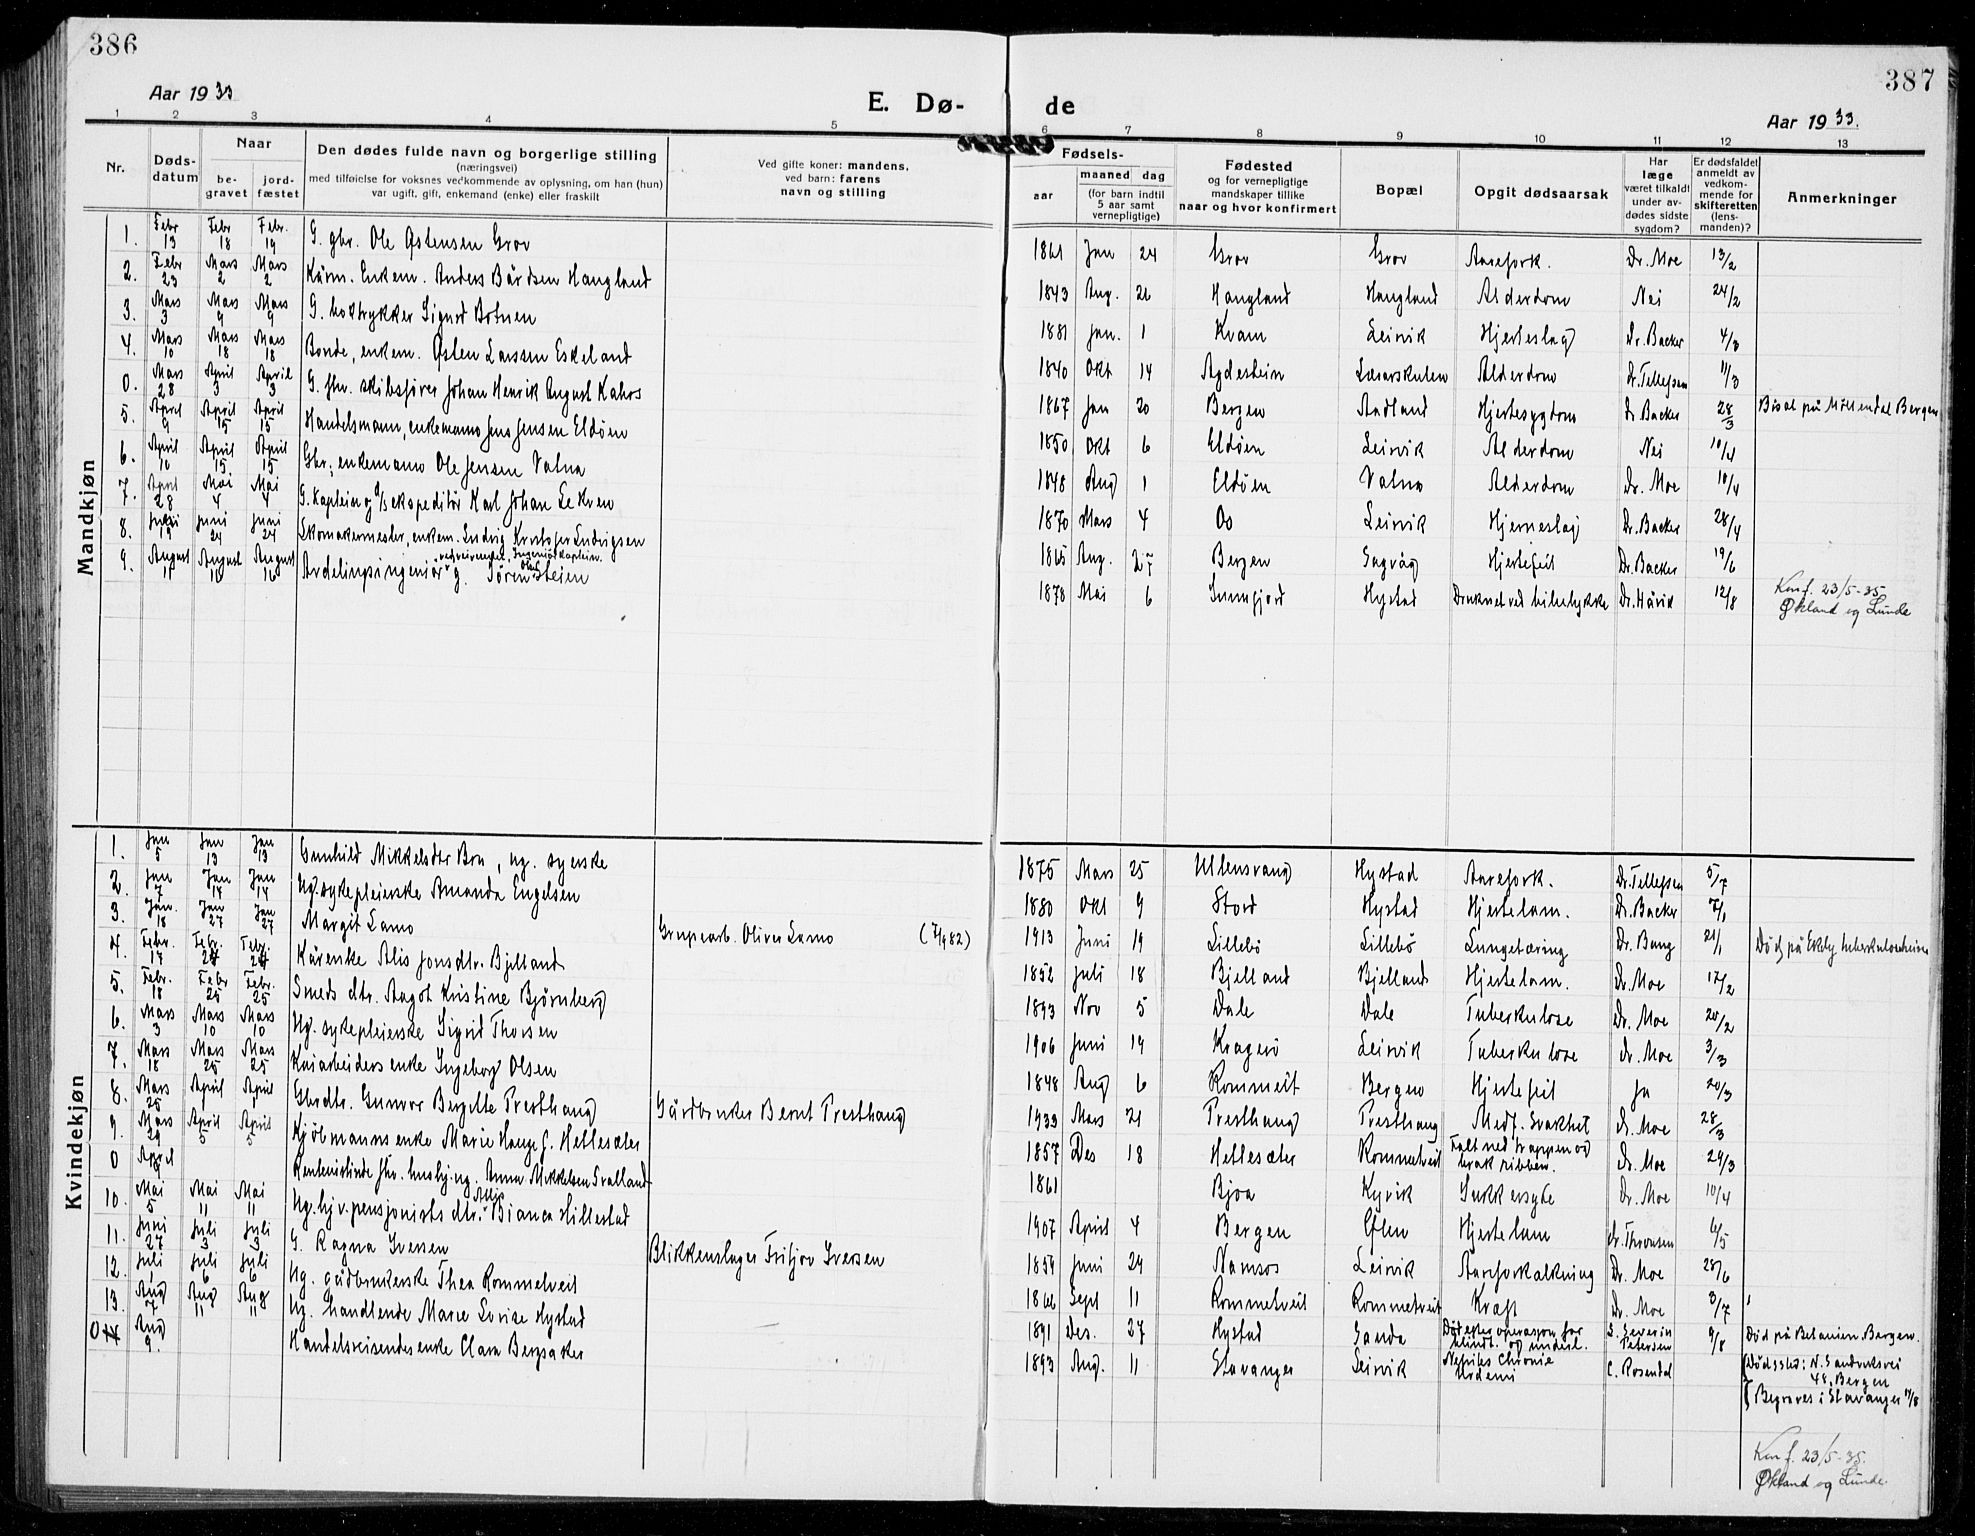 386
387
Aar 1933
E. Dø-
de
Aar 1933.
1 2 3 4 5 6 7 8 9 10 11 12 13
Nr.
Døds-
datum
Naar
be-
gravet
jord-
fæstet
Den dødes fulde navn og borgerlige stilling
(næringsvei)
med tilføielse for voksnes vedkommende av oplysning, om han (hun)
var ugift, gift, enkemand (enke) eller fraskilt
Ved gifte koner: mandens,
ved barn: farens
navn og stilling
Fødsels-
aar
maaned
dag
(for barn indtil
5 aar samt
vernepligtige)
Fødested
og for vernepligtige
mandskaper tillike
naar og hvor konfirmert
Bopæl
Opgit dødsaarsak
Har
læge
været tilkaldt
under av-
dødes sidste
sygdom?
Er dødsfaldet
anmeldt av
vedkom-
mende for
skifteretten
(lens-
manden)?
Anmerkninger
Mandkjøn
1. Febr 13 Febr 18 Febr. 19 G. gbr. Ole Østensen Grov 1861 Jan 24 Grov Grov Aarefork. Dr. Moe 13/2
2. Febr 23 Mars 2 Mars 2 Kårm. Enkem. Anders Bårdsen Haugland 1843 Aug. 26 Haugland Haugland Alderdom Nei 24/2
3. Mars 3 Mars 9 Mars 9 G. boktrykker Sigurd Botnen 1881 Jan. 1 Kvam Leirvik Hjerteslag Dr. Backer 4/3
4. Mars 10 Mars 18 Mars 18 Bonde, enkem. Østen Larssen Eskeland 1840 Okt 14 Agdestein Lærarskulen Alderdom Dr. Tellefsen 11/3
0. Mars 28 April 3 April 3 G. fhv. skibsfører Johan Henrik August Kahrs 1867 Jan 20 Bergen Aadland Hjertesygdom Dr Backer 28/3 Bisat på Møllendal Bergen
5. April 9 April 15 April 15 Handelsmann, enkemann Jens Jensen Eldøen 1850 Okt 6 Eldøen Leirvik Alderdom Nei 10/4
6. April 10 April 15 April 15 Gbr., enkemann Ole Jensen Valna 1848 Aug 1 Eldøen Valna Alderdom Dr. Moe 10/4
7. April 28 Mai 4 Mai 4 G. Kaptein og d/s ekspeditør Karl Johan Lekven 1870 Mars 4 Os Leirvik Hjerneslag Dr. Backer 28/4
8. Juni 19 Juni 24 Juni 24 Skomakermester, enkem. Ludvig Kristofer Ludvigsen 1865 Aug. 27 Bergen Sagvåg Hjertefeil Dr. Backer 19/6
9. August 11 August 16 August 16 Avdelingsingeniør v. veivesenet, Ingeniørkaptein. g. Søren Olaf Steien 1878 Mai 6 Sunnfjord Hystad Druknet ved bilulykke Dr. Håvik 12/8
Konf. 23/5-35
Økland og Lunde
Kvindekjøn
1. Jan 5 Jan 13 Jan 13 Gunhild Mikkelsdtr Bra, ug. syerske 1875 Mars 25 Ullensvang Hystad Aarefork. Dr. Tellefsen 5/7
2. Jan 7 Jan 14 Jan 14 Ug. sykepleierske Amanda Engelsen 1880 Okt 9 Stord Hystad Hjertelam. Dr. Backer 7/1
3. Jan. 18 Jan 27 Jan 27 Margit Lamo Grupearb. Oliver Lamo 1913 Juni 19 Lillebø Lillebø Lungetæring Dr. Bang 21/1 Død på Ekely tuberkuloseheim
4. Febr. 17 Febr. 24 Febr. 24 Kårenke Alis Jonsdtr. Bjelland 1852 Juli 18 Bjelland Bjelland Hjertelam. Dr. Moe 17/2
5. Febr. 18 Febr 25 Febr. 25 Smeds dtr. Aagot Kristine Bjørnberg 1893 Nov 5 Dale Dale Tuberkulose Dr. Moe 20/2
6. Mars 3 Mars 10 Mars 10 Ug. sykepleierske Sigrid Thorsen 1906 Juni 19 Kragerø Leirvik Tuberkulose dr. Moe 3/3
7. Mars 18 Mars 25 Mars 25 Kaiarbeiders enke Ingeborg Olsen 1848 Aug 6 Rommeit Bergen Hjertefeil Ja 20/3
8. Mars 25 April 1 April 1 Gbrdtr. Gunvor Bergitte Presthaug Gårdbruker Bernt Presthaug 1933 Mars 21 Presthaug Presthaug Medf. Svakhet dr. Moe 28/3
9. Mars 29 April 5 April 5 Kjøbmanns enke Marie Hauge f. Hellesæter 1857 Des 18 Hellesæter Rommetveit Falt ned trappen og brak ribben. dr. Moe 29/3
0 April 8 Rentenistinde fhv. husbj. ug. Anna Mikkelsen Svalland 1861 Bjoa Kyvik Sukkersyke Dr. Moe 10/4
10. Mai 5 Mai 11 Mai 11 Ug. hjv. pensjonists dtr. Bianca Hillestad 1907 April 4 Bergen Ølen Hjertelam dr. Thronsen 6/5
11. Juni 27 Juli 3 Juli 3 G. Ragna Iversen Blikkenslager Fritjov Iversen 1859 Juni 24 Namsos Leirvik Aareforkalkning Dr. Moe 28/6
12. Juli 1 Juli 6 Juli 6 Ug. gårdbrukerske Thea Rommetveit 1866 Sept 11 Rommetveit Rommetveit Kræft Dr. Moe 3/7
13. Aug 7 Aug 11 Aug 11 Ug. handlende Marie Lovise Hystad 1891 Des. 27 Hystad Sanda Død efter operasjon for blindt. og underl. S. Severin Petersen 9/8 Død på Betanien, Bergen.
0 Aug 9. Handelsreisendes enke Clara Bergsaker 1893 Aug. 11 Stavanger Leirvik Nefrites Chronie Urdemi C. Rosendal Dødssted: N. Sandviksvei
48, Bergen
Begraves i Stavanger 11/8
Konf. 23/5-35.
Økland og Lunde